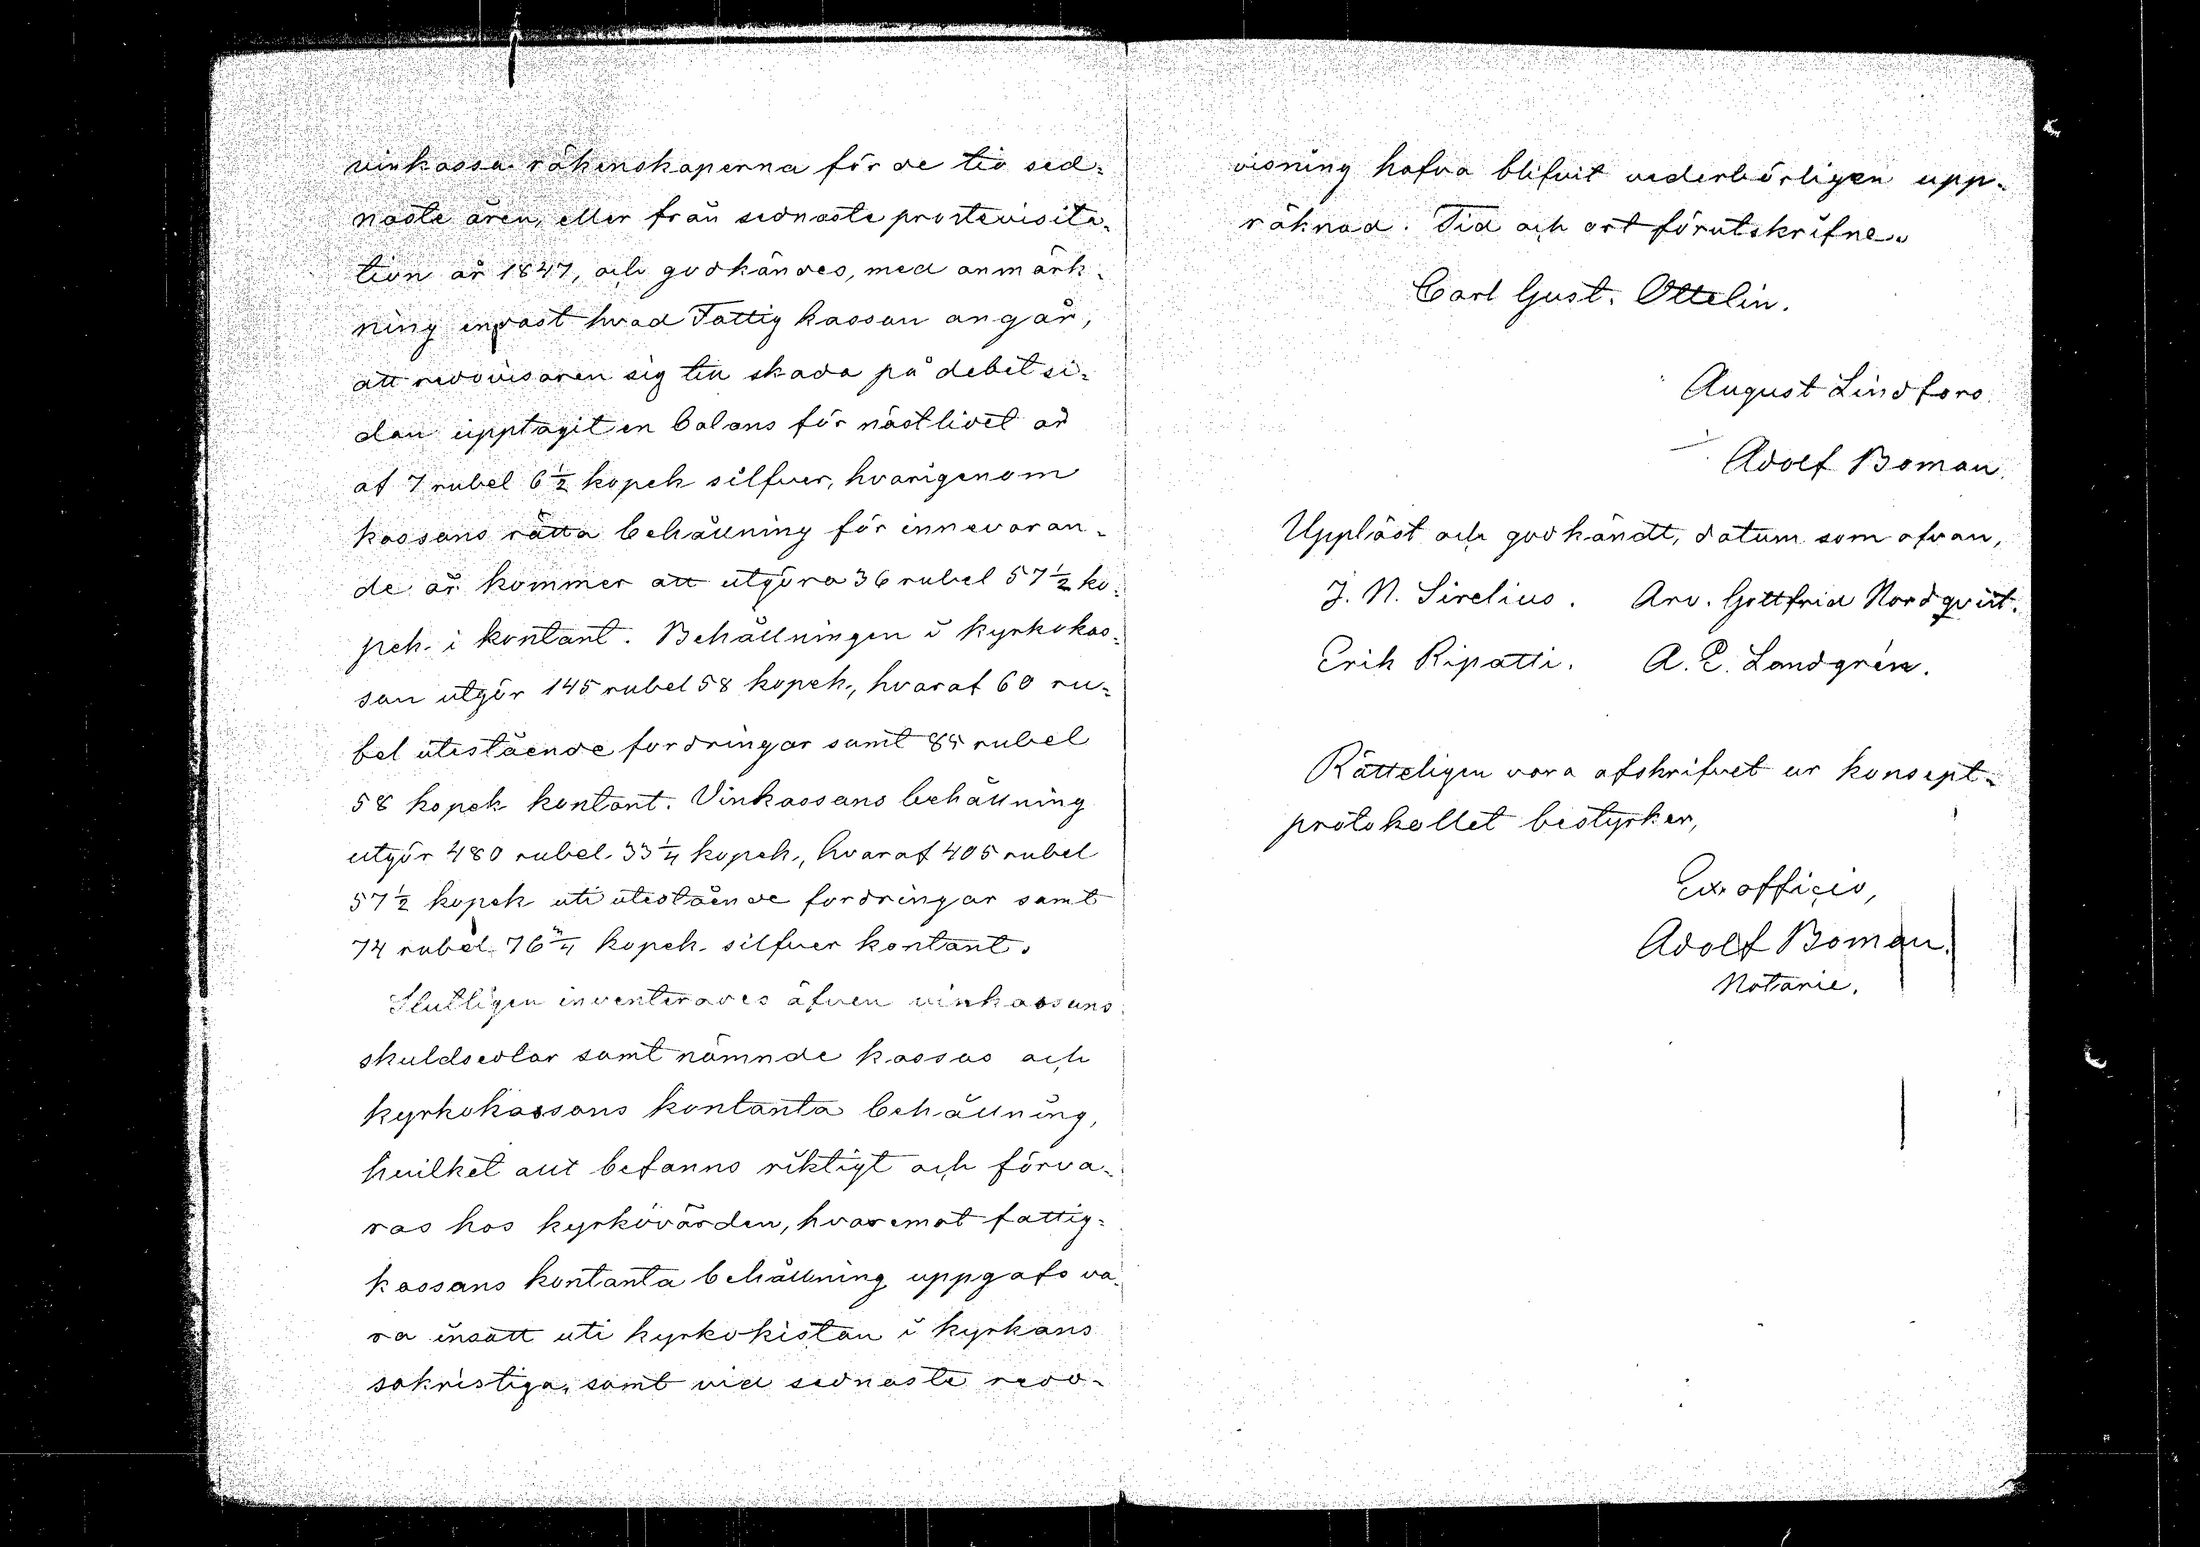 vinkassa räkenskaperna för de tio sed-
naste åren, eller från sednaste prostevisita-
tion år 1847, och godkändes, med anmärk-
ning endast hvad Fattigkassan angår,
att redovisaren sig till skada på debetsi-
dan upptagit en balans för nästlidet år
af 7 rubel 6 1/2 kopek silfver, hvarigenom
kassans rätta behållning för innevaran-
de år kommer att utgöra 36 rubel 57 1/2 ko-
pek i kontant. Behållningen i kyrkokas-
san utgör 145 rubel 58 kopek, hvaraf 60 ru-
bel utestående fordringar samt 85 rubel
58 kopek kontant. Vinkassans behållning
utgör 480 rubel 33 1/4 kopek, hvaraf 405 rubel
57 1/2 kopek uti utestående fordringar samt
74 rubel 76 3/4 kopek silfver kontant.
Slutligen inventerades äfven vinkassans
skuldsedlar samt nämnde kassas och
kyrkokassans kontanta behållning,
hvilket allt befanns riktigt och förva-
ras hos kyrkovärden, hvaremot fattig-
kassans kontanta behållning uppgafs va-
ra insatt uti kyrkokistan i kyrkans
sakristiga, samt vid sednaste redo-
visning hafva blifvit vederbörligen upp-
räknad. Tid och ort förutskrifne.
Carl Gust. Ottelin.
August Lindfors.
Adolf Boman.
Uppläst och godkändt, datum som ofvan,
J. N. Sirelius. Arv. Gottfrid Nordqvist.
Erik Ripatti. A. E. Landgrén.
Rätteligen vara afskrifvet ur konsept-
protokollet bestyrker,
Ex officio,
Adolf Boman.
Notarie.